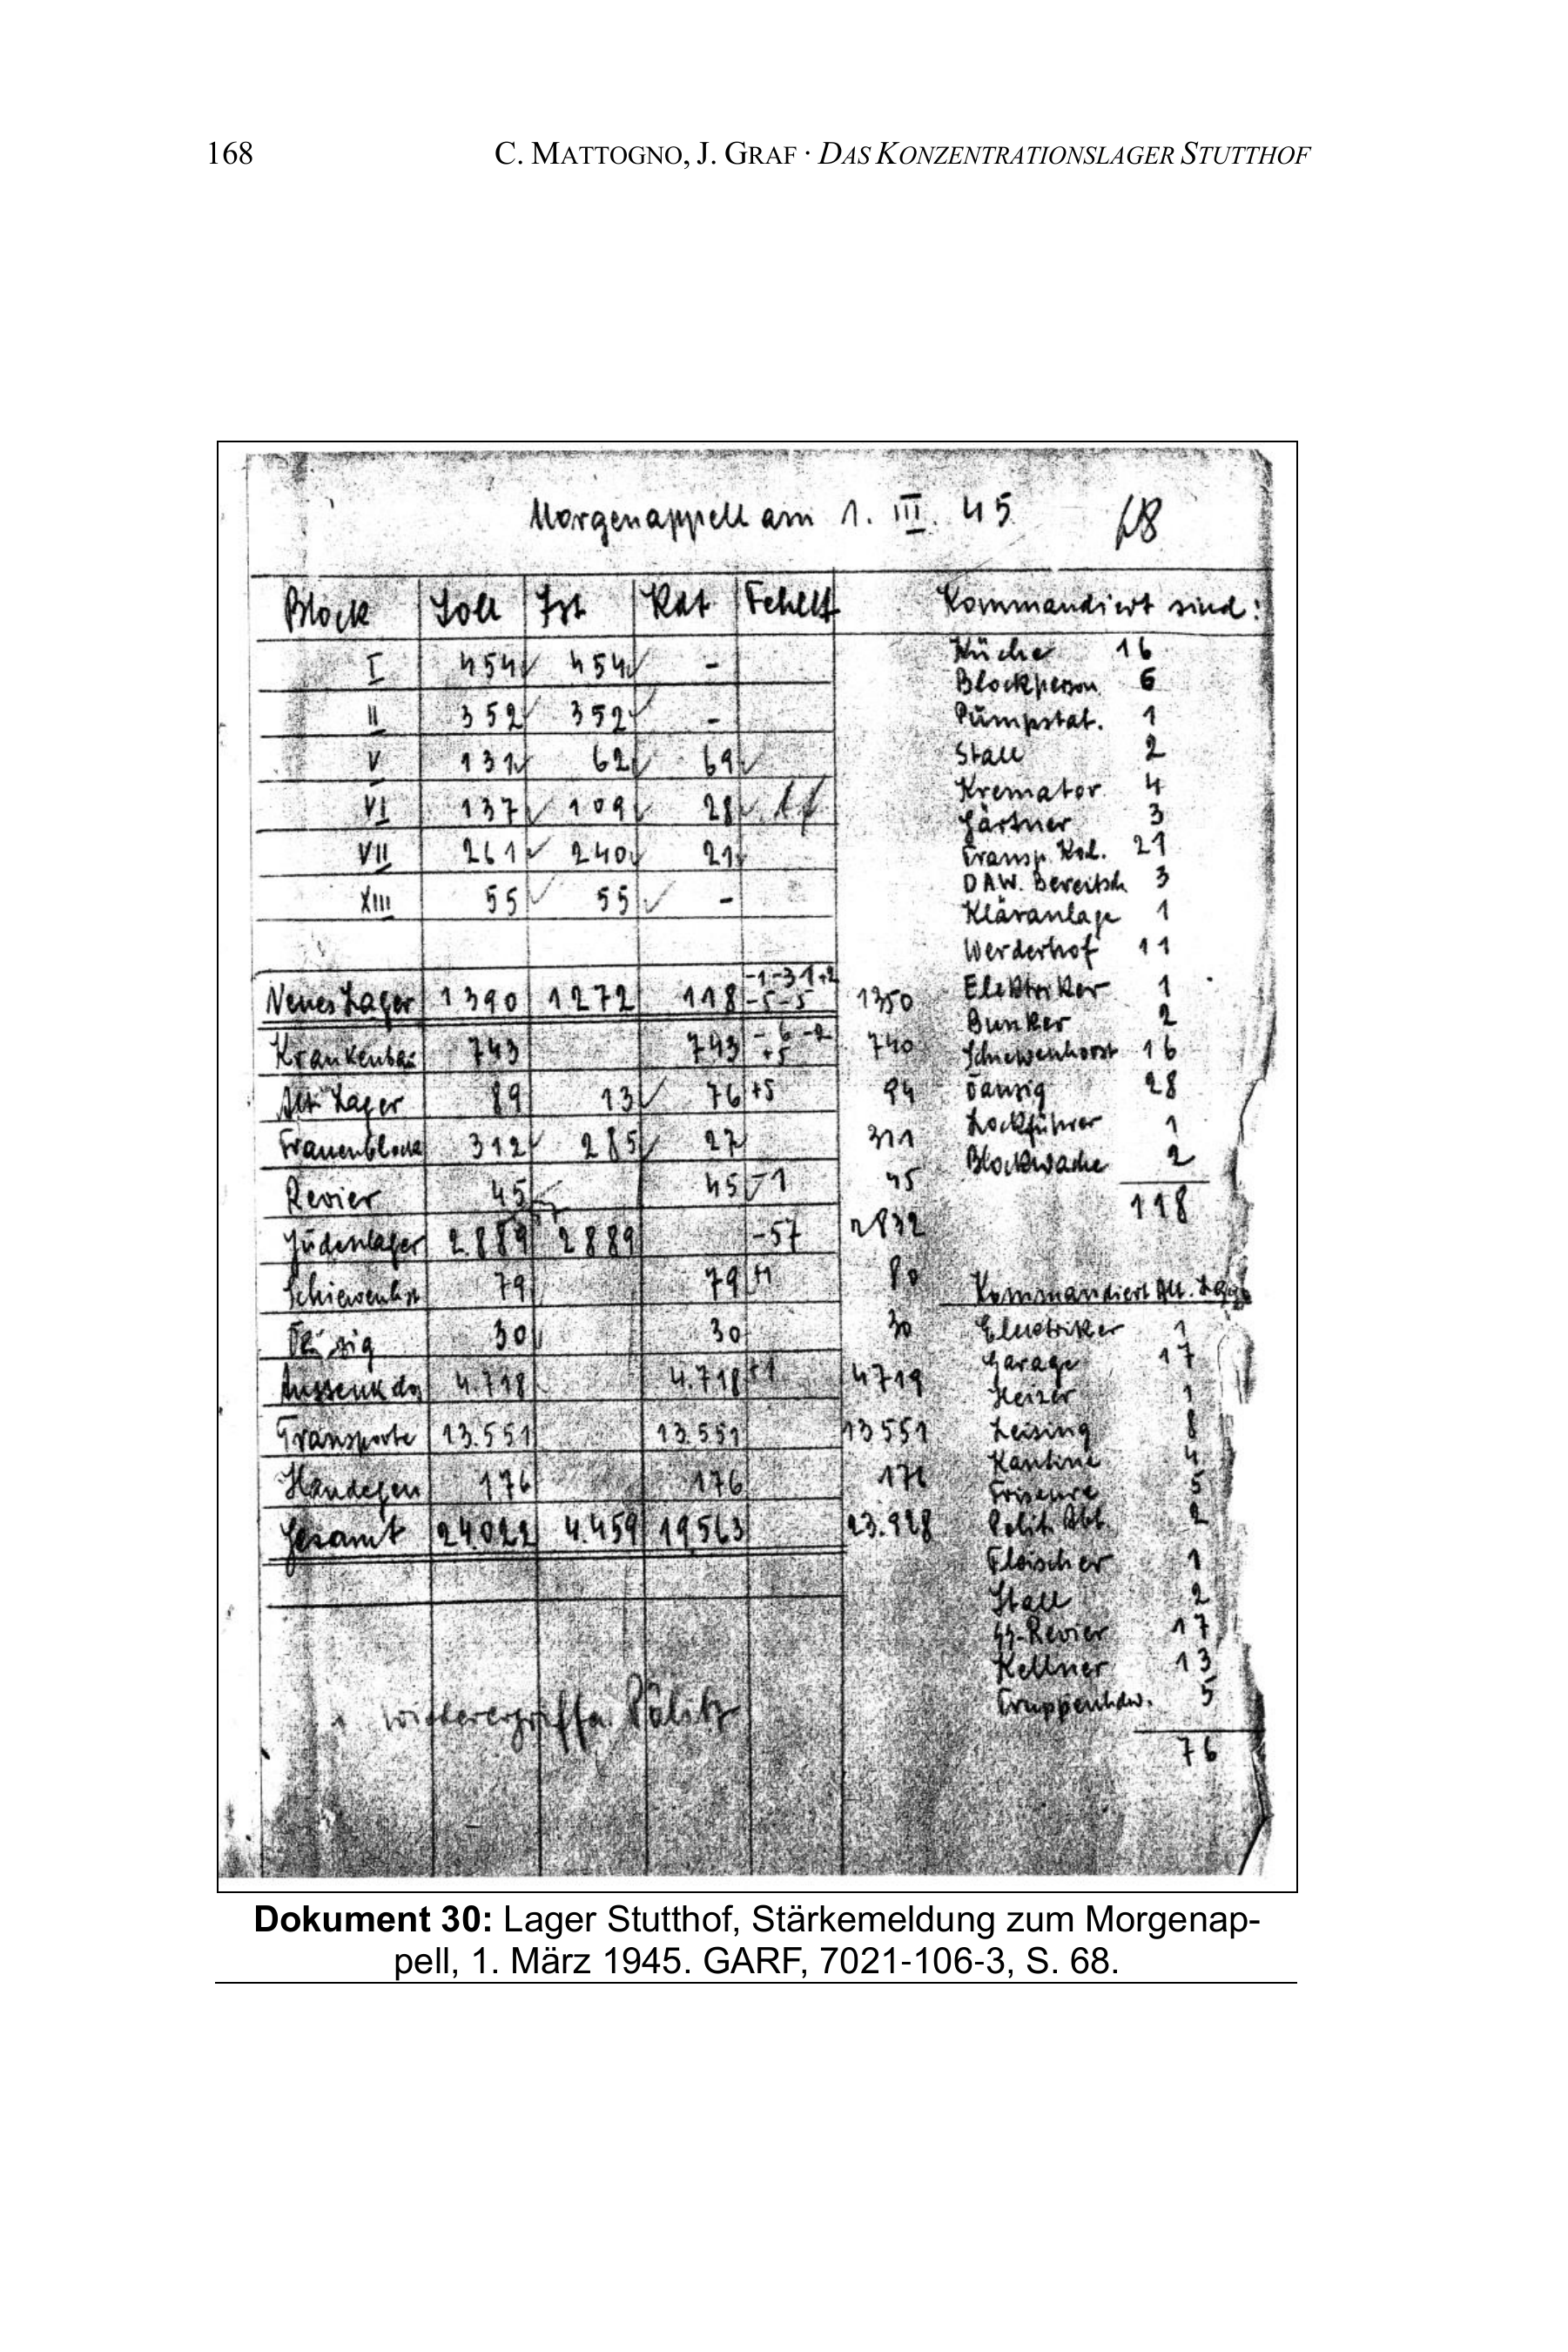 168 C. MATTOGNO, J. GRAF · DAS KONZENTRATIONSLAGER STUTTHOF
Morgenappell am 1. III. 45 68
Block Soll Ist Kdt Fehlt Kommandiert sind:
I 454 454 -
II 352 352 -
V 131 62 69
VI 137 109 28
VII 261 240 21
XIII 55 55 -
Neues Lager 1390 1272 118 -1-31+2 -5-5 1350
Krankenbau 743 743 -6-2 +5 740
Alt. Lager 89 13 76 +5 94
Frauenblock 312 285 27 311
Revier 45 45 -1 45
Judenlager 2889 2889 -57 2832
Schiewenhst 79 79 +1 80
Danzig 30 30 30
Aussenkdo 4.718 4.718 +1 4719
Transporte 13.551 13.551 13551
176 176 176
Gesamt 24022 4.459 19563 23.928
wiederergriffen Pölitz
Küche 16
Blockperson 6
Pumpstat. 1
Stall 2
Kremator. 4
Gärtner 3
Transp. Kol. 21
DAW. Bereitsch 3
Kläranlage 1
Werderhof 11
Elektriker 1
Bunker 2
Schiewenhorst 16
Danzig 28
Lockführer 1
Blockwache 2
118
Kommandiert Alt. Lager
Elektriker 1
Garage 17
Heizer 1
Leising 8
Kantine 4
Friseure 5
Polit. Abt. 2
Fleischer 1
Stall 2
SS-Revier 17
Kellner 13
Truppenhdw. 5
76
Dokument 30: Lager Stutthof, Stärkemeldung zum Morgenap-
pell, 1. März 1945. GARF, 7021-106-3, S. 68.